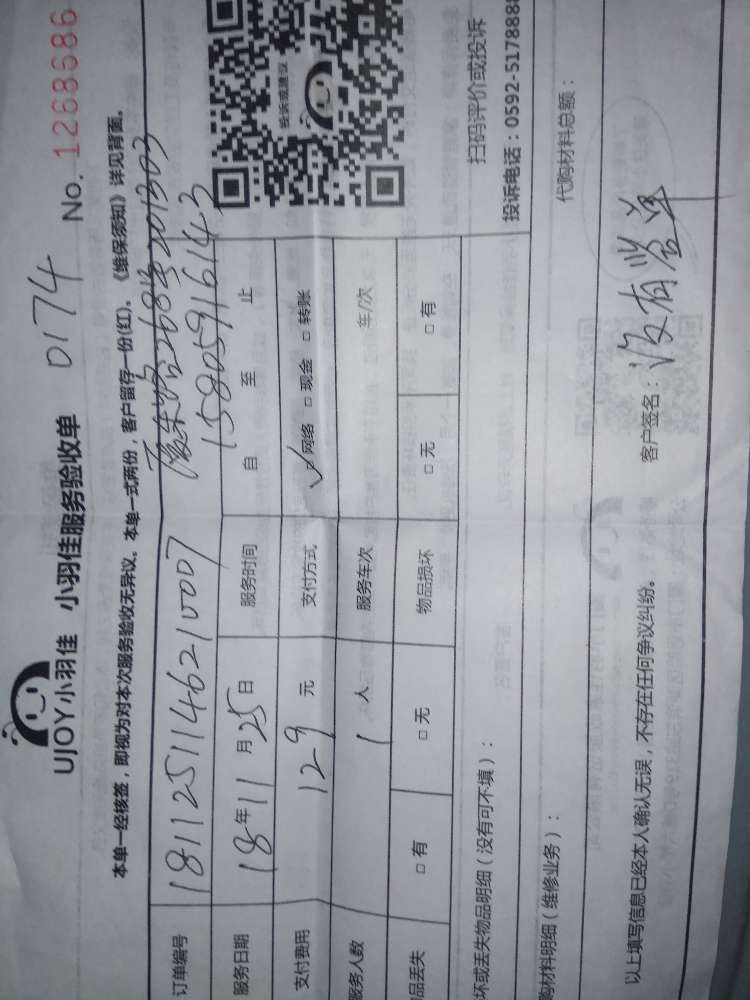 UJOY小羽佳 小羽佳服务验收单 0174 No. 1268686
本单一经核签，即视为对本次服务验收无异议。本单一式两份，客户留存一份(红)。《维保须知》详见背面。
订单编号 1811251146210007 268号201303
15805916143
服务日期 18年11月25日 服务时间 自 至 止
支付费用 129 元 支付方式 ☑网络 □现金 □转账
服务人数 1 人 服务车次 车/次
品丢失 □有 □无 物品损坏 □无 □有
投诉或建议
扫码评价或投诉
投诉电话：0592-517888
坏或丢失物品明细（没有可不填）：
购材料明细（维修业务）： 代购材料总额：
以上填写信息已经本人确认无误，不存在任何争议纠纷。 客户签名：没有签单